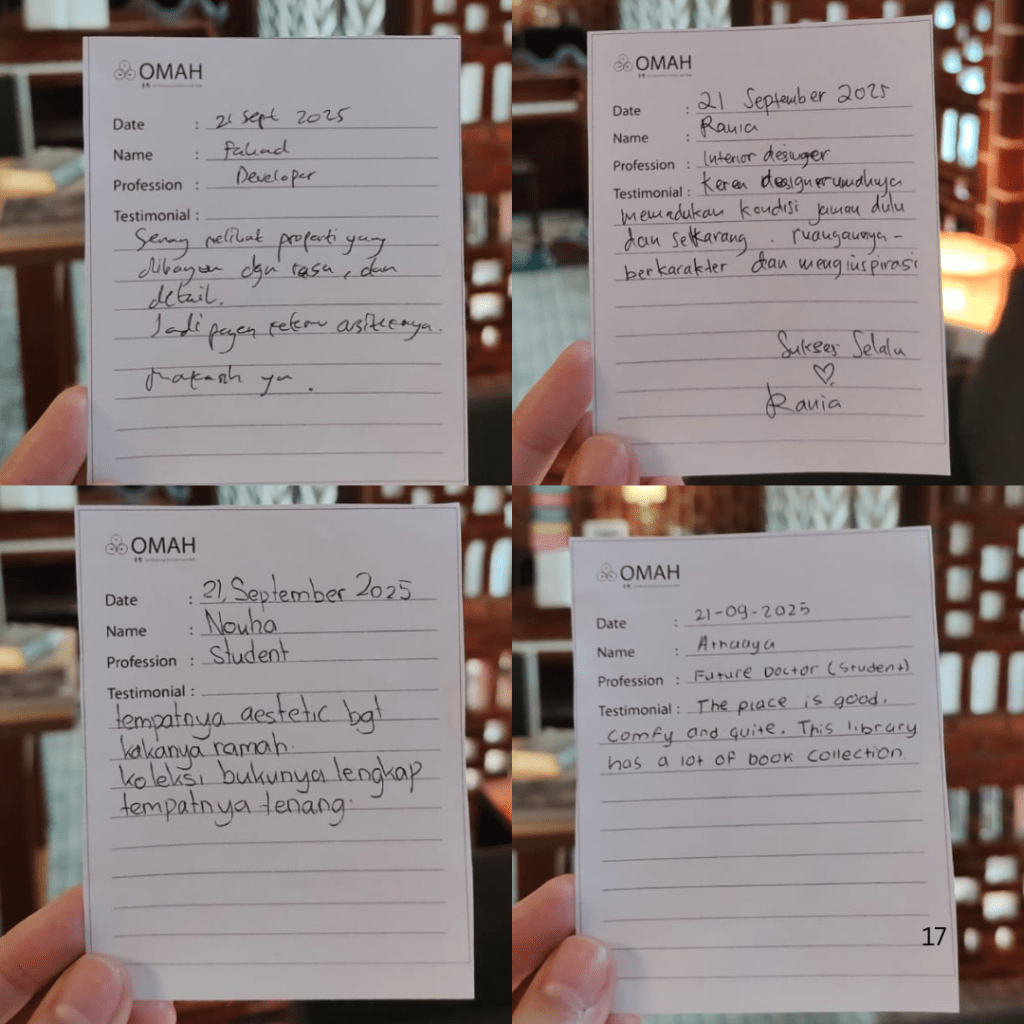 OMAH
Date : 21 Sept 2025
Name : Fahad
Profession : Developer
Testimonial :
Senang melihat properti yang
dibangun dgn rasa, dan
detail.
Jadi pengen ketemu arsiteknya.
Makasih ya.
OMAH
Date : 21 September 2025
Name : Rania
Profession : Interior designer
Testimonial : Keren designerumahnya
memadukan kondisi jaman dulu
dan sekarang. ruangannya-
berkarakter dan menginspirasi
Sukses Selalu
♡
Rania
OMAH
Date : 21, September 2025
Name : Nouha
Profession : Student
Testimonial :
tempatnya aestetic bgt
kakanya ramah.
koleksi bukunya lengkap
tempatnya tenang.
OMAH
Date : 21-09-2025
Name :
Profession : Future Doctor (Student)
Testimonial : The place is good,
comfy and quite. This library
has a lot of book collection.
17